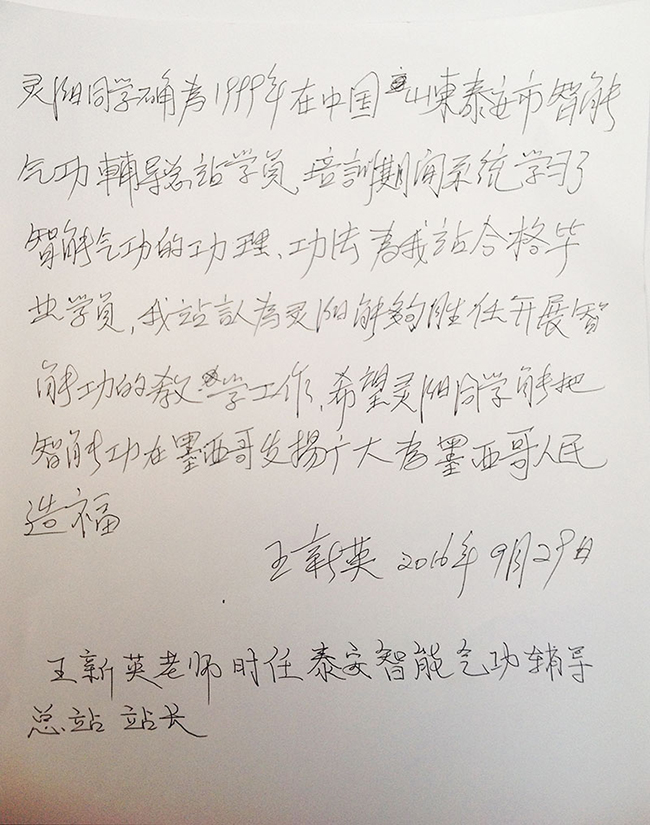 灵阳同学确為1999年在中国山東泰安市智能
气功輔导总站学员,培訓期间系统学习了
智能气功的功理、功法為我站合格毕
业学员,我站認為灵阳能夠胜任开展智
能功的教学工作,希望灵阳同学能把
智能功在墨西哥发揚广大為墨西哥人民
造福
王新英 2016年9月29日
王新英老师时任泰安智能气功辅导
总站站长